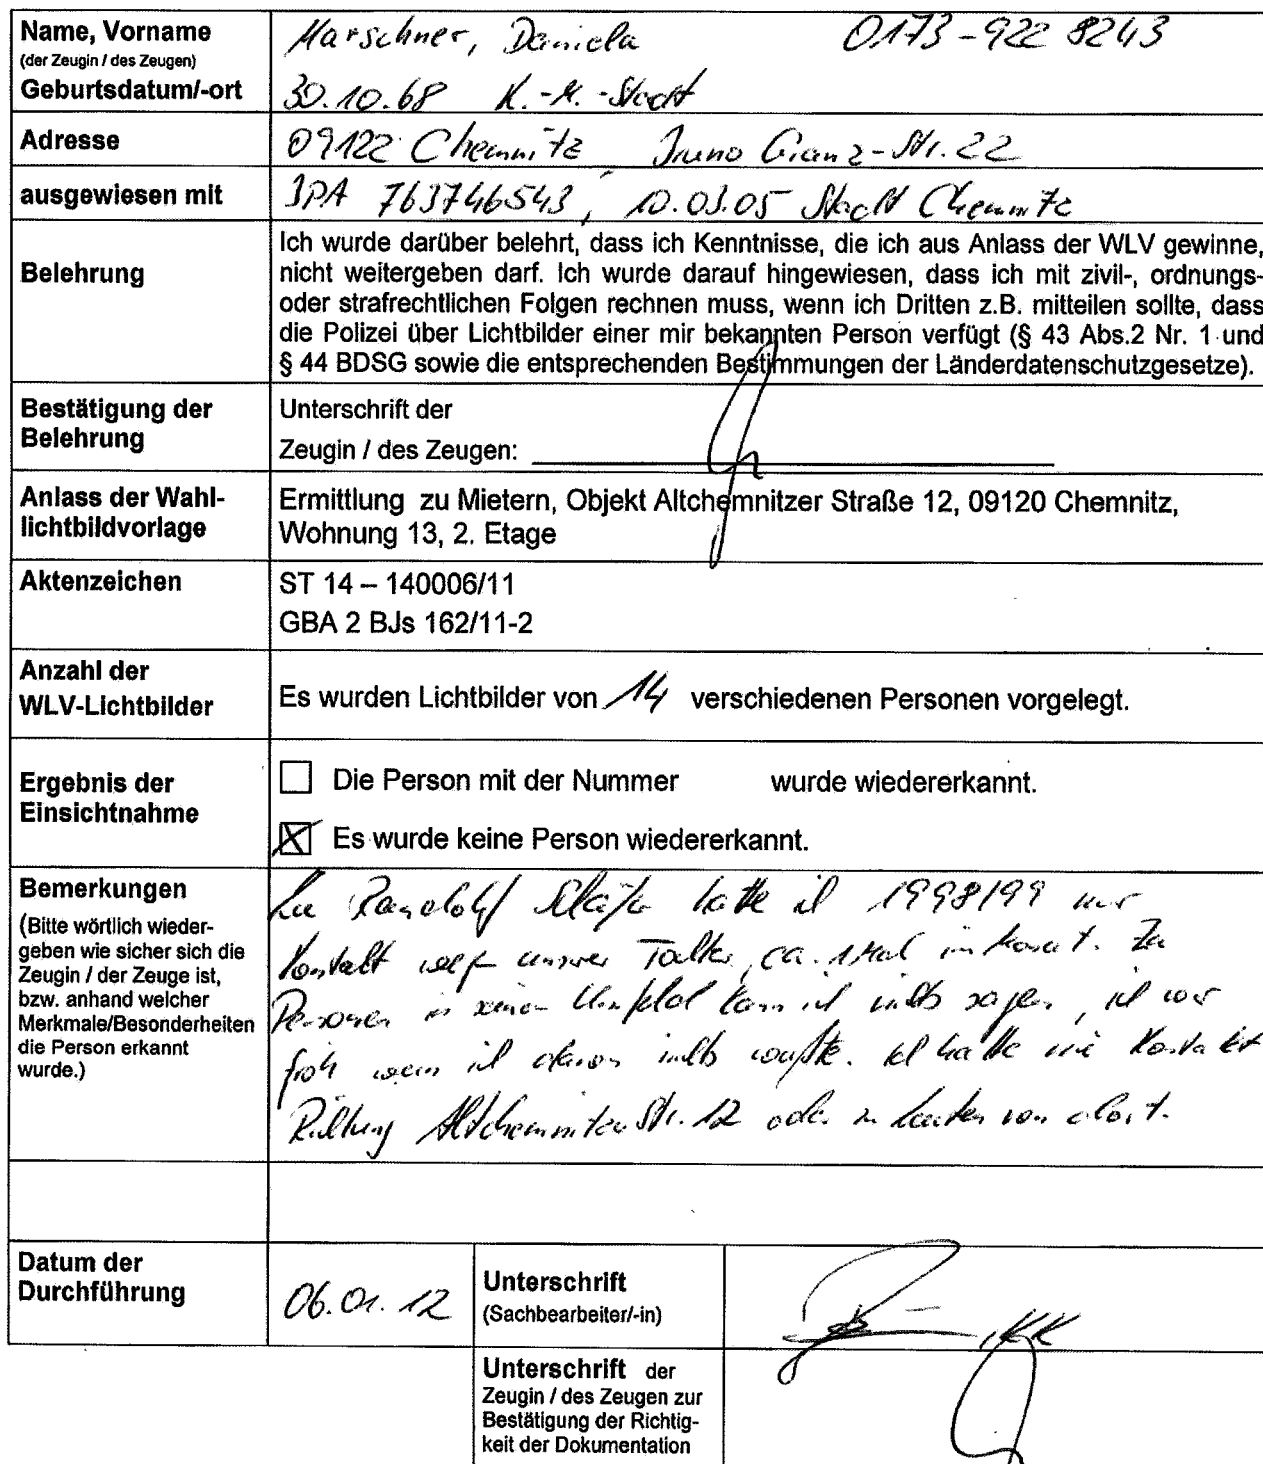 Name, Vorname
(der Zeugin / des Zeugen)
Geburtsdatum/-ort
Marschner, Daniela 0173-922 8243
30.10.68 K.-M.-Stadt
Adresse
09122 Chemnitz, Bruno Granz-Str. 22
ausgewiesen mit
BPA 763746543, 10.03.05 Stadt Chemnitz
Belehrung
Ich wurde darüber belehrt, dass ich Kenntnisse, die ich aus Anlass der WLV gewinne,
nicht weitergeben darf. Ich wurde darauf hingewiesen, dass ich mit zivil-, ordnungs-
oder strafrechtlichen Folgen rechnen muss, wenn ich Dritten z.B. mitteilen sollte, dass
die Polizei über Lichtbilder einer mir bekannten Person verfügt (§ 43 Abs.2 Nr. 1 und
§ 44 BDSG sowie die entsprechenden Bestimmungen der Länderdatenschutzgesetze).
Bestätigung der
Belehrung
Unterschrift der
Zeugin / des Zeugen:
Anlass der Wahl-
lichtbildvorlage
Ermittlung zu Mietern, Objekt Altchemnitzer Straße 12, 09120 Chemnitz,
Wohnung 13, 2. Etage
Aktenzeichen
ST 14 – 140006/11
GBA 2 BJs 162/11-2
Anzahl der
WLV-Lichtbilder
Es wurden Lichtbilder von 14 verschiedenen Personen vorgelegt.
Ergebnis der
Einsichtnahme
Die Person mit der Nummer wurde wiedererkannt.
Es wurde keine Person wiedererkannt.
Bemerkungen
(Bitte wörtlich wieder-
geben wie sicher sich die
Zeugin / der Zeuge ist,
bzw. anhand welcher
Merkmale/Besonderheiten
die Person erkannt
wurde.)
Zu Randolf hatte ich 1998/99 nur
Kontakt wegen unserer Tochter, ca. 1 Mal im Monat. Zu
Personen in seinem Umfeld kann ich nichts sagen, ich war
froh wenn ich davon nichts wußte. Ich hatte nie Kontakt
Richtung Altchemnitzer Str. 12 oder zu Leuten von dort.
Datum der
Durchführung
06.01.12
Unterschrift
(Sachbearbeiter/-in)
, KK
Unterschrift der
Zeugin / des Zeugen zur
Bestätigung der Richtig-
keit der Dokumentation